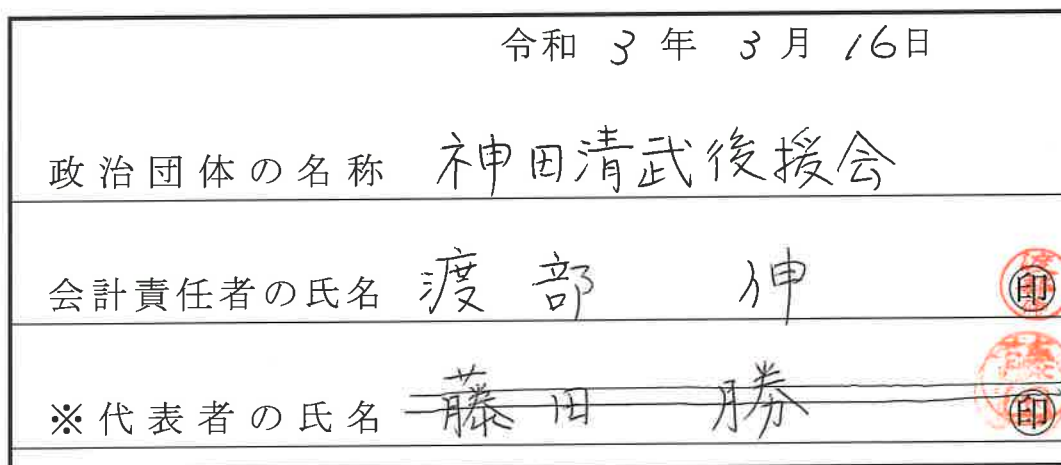 令和 3 年 3 月 16日
政治団体の名称 神田清武後援会
会計責任者の氏名 渡部 伸 印
※代表者の氏名 藤田 勝 印